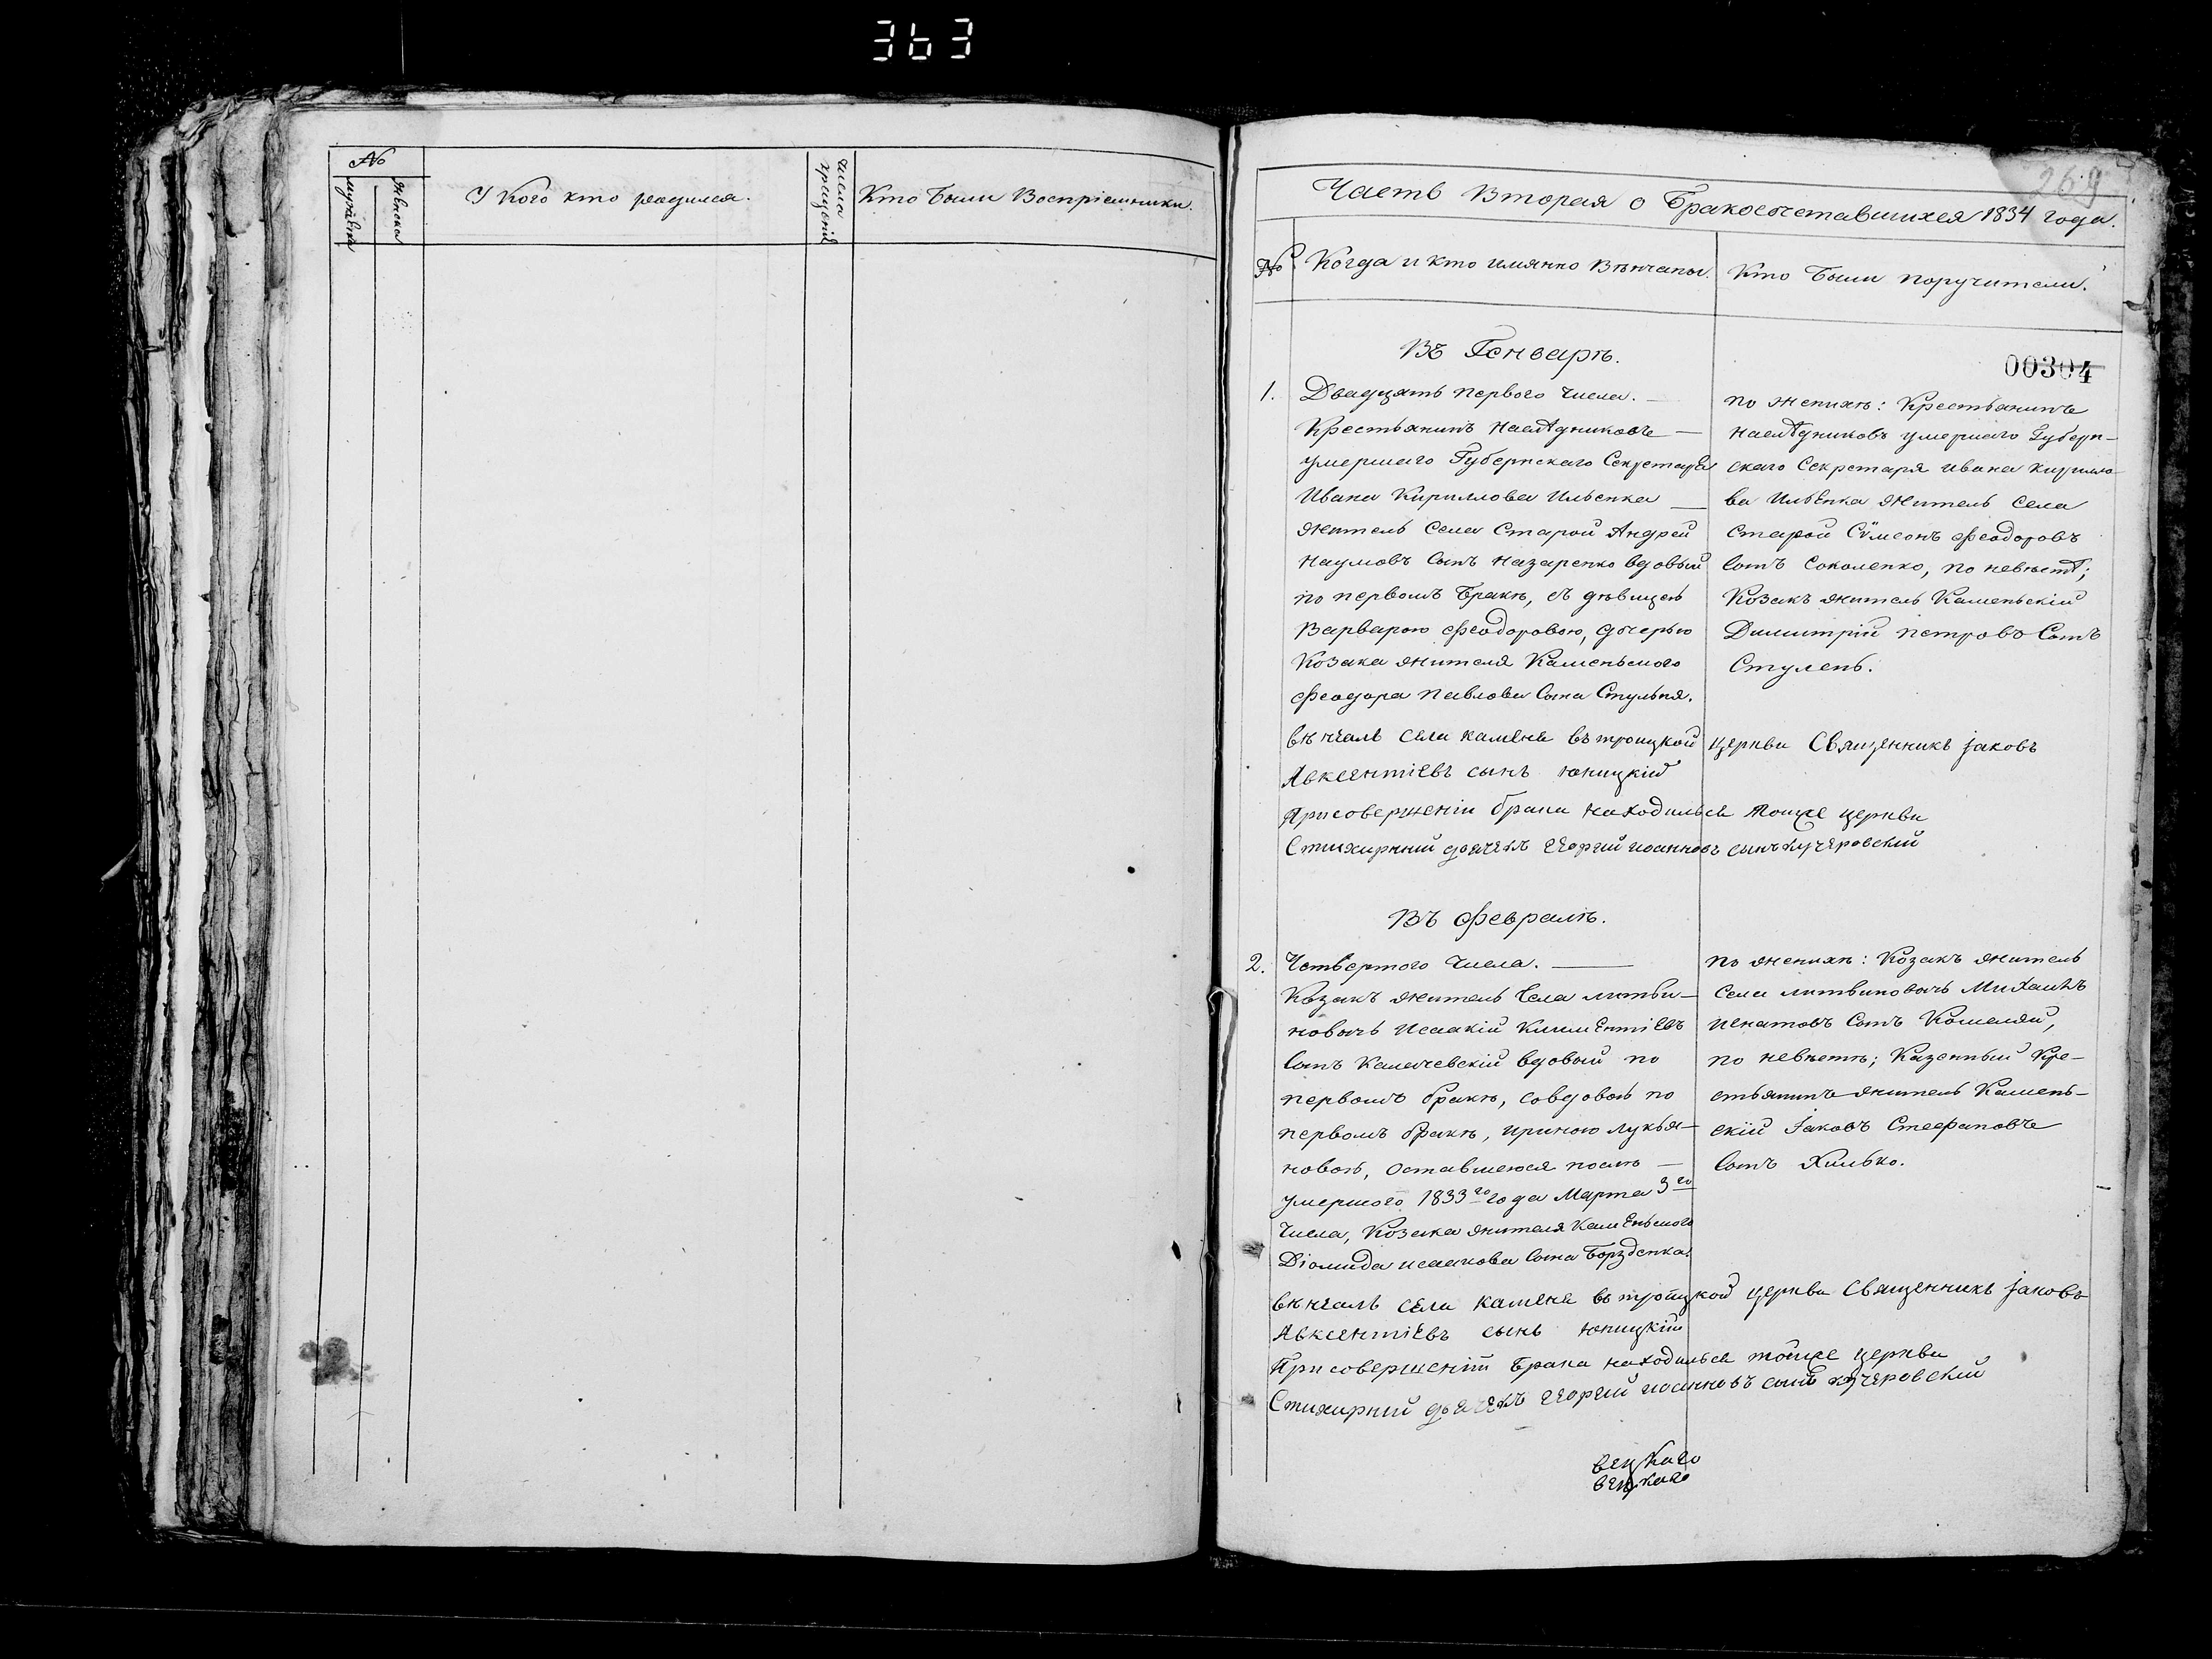 363
№
мужеска
женска
У Кого кто родился.
Числа
Кто были Воспріемники.
269
Часть Вторая о Бракосочетавшихся 1834 года.
№
Когда и кто имянно Вѣнчаны.
Кто были поручители.
Въ Генварѣ.
00304
1. Двадцять первого числа. —
Крестьянинъ наслѣдниковъ —
умершаго Губернскаго Секретаря
Ивана Кириллова Ильенка —
житель Села Старой Андрей
Наумовъ Сынъ Назаренко вдовый
по первомъ Бракѣ, съ дѣвицею
Варварою Феодоровою, дочерью
Козака жителя Каменьского
Феодора Павлова Сына Стульня.
по женихѣ: Крестьянинъ
наслѣдниковъ умершаго Губерн-
скаго Секретаря Ивана Кирилло-
ва Ильенка житель села
Старой Сѵмеонъ Феодоровъ
Сынъ Соколенко, по невѣстѣ;
Козакъ житель Каменьскій
Димитрій Петровъ Сынъ
Стулень.
вѣнчалъ села каменя въ троицкой церкви Священникъ Јаковъ
Авксентіевъ сынъ Юницкій
При совершеніи брака находился тоїже церкви
Стихирный дьячекъ Георгий иоанновъ сынъ кучеровский
Въ Февралѣ.
2. Четвертого Числа. —
Козакъ житель Села литви-
новичъ Исаакій Климентіевъ
Сынъ Калачевскій вдовый по
первомъ бракѣ, со вдовою по
первомъ бракѣ, Ириною Лукья-
новою, оставшеюся послѣ —
умершого 1833го года Марта 3го
Числа, Козака жителя Каменьского
Діомида Исаакова Сына Борзденка.
по женихѣ: Козакъ житель
села литвиновичъ Михаилъ
Игнатовъ Сынъ Кошеляй,
по невѣстѣ; Казенный Кре-
стьянинъ житель Камень-
скій Јаковъ Стефановъ
Сынъ Хилько.
вѣнчалъ села каменя въ троицкой церкви Священникъ Јаковъ
Авксентіевъ сынъ Юницкій
При совершеніи брака находился тоїже церкви
Стихирный дьячекъ Георгий иоанновъ сынъ кучеровский
вецкаго
вецкаго